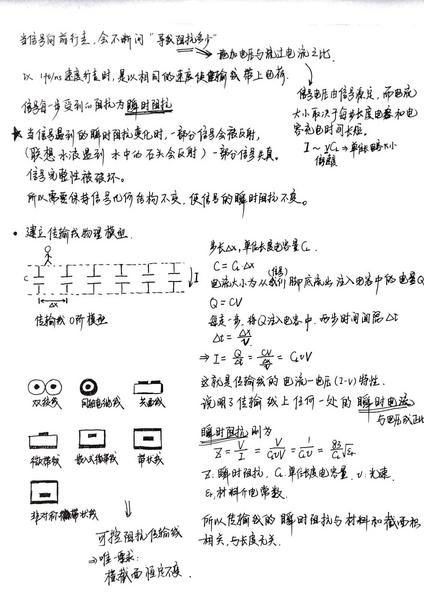 当信号向前行走，会不断问“导线阻抗多少”
施加电压与流过电流之比
以 1ft/ns 速度行走时，是以相同的速度使传输线带上电荷。
信号每一步受到的阻抗为瞬时阻抗
信号电压由信号决定，而电流
大小取决于每步长度电容和电
容充电时间长短。
I ~ VCL → 单位长度电容大小
★ 当信号遇到的瞬时阻抗变化时，一部分信号会被反射，
(联想 水波遇到 水中的石头会反射) 一部分信号失真。
信号完整性被破坏。
所以需要保持信号几何结构不变，使信号的瞬时阻抗不变。
• 建立传输线物理模型
C
Δx
I
传输线 0阶模型
步长Δx，单位长度电容量CL
C = CL Δx
(信号)
电流大小为从我们脚底流出 注入电容中的电量Q
Q = CV
每走一步，将Q注入电容中，两步时间间隔 Δt
Δt = Δx/v
⇒ I = Q/Δt = CV/(Δx/v) = CLvV
这就是传输线的电流—电压(I-V)特性。
说明了传输线上任何一处的瞬时电流
与电压成正比
瞬时阻抗则为
Z = V/I = V/(CLvV) = 1/(CLv) = 83/CL √εr
Z: 瞬时阻抗，CL 单位长度电容量，v: 光速，
εr 材料介电常数。
所以传输线的瞬时阻抗与材料和截面积
相关，与长度无关。
双绞线 同轴电缆线 共面线
微带线 嵌入式微带线 带状线
非对称带状线
可控阻抗传输线
⇒ 唯一要求：
横截面恒定不变